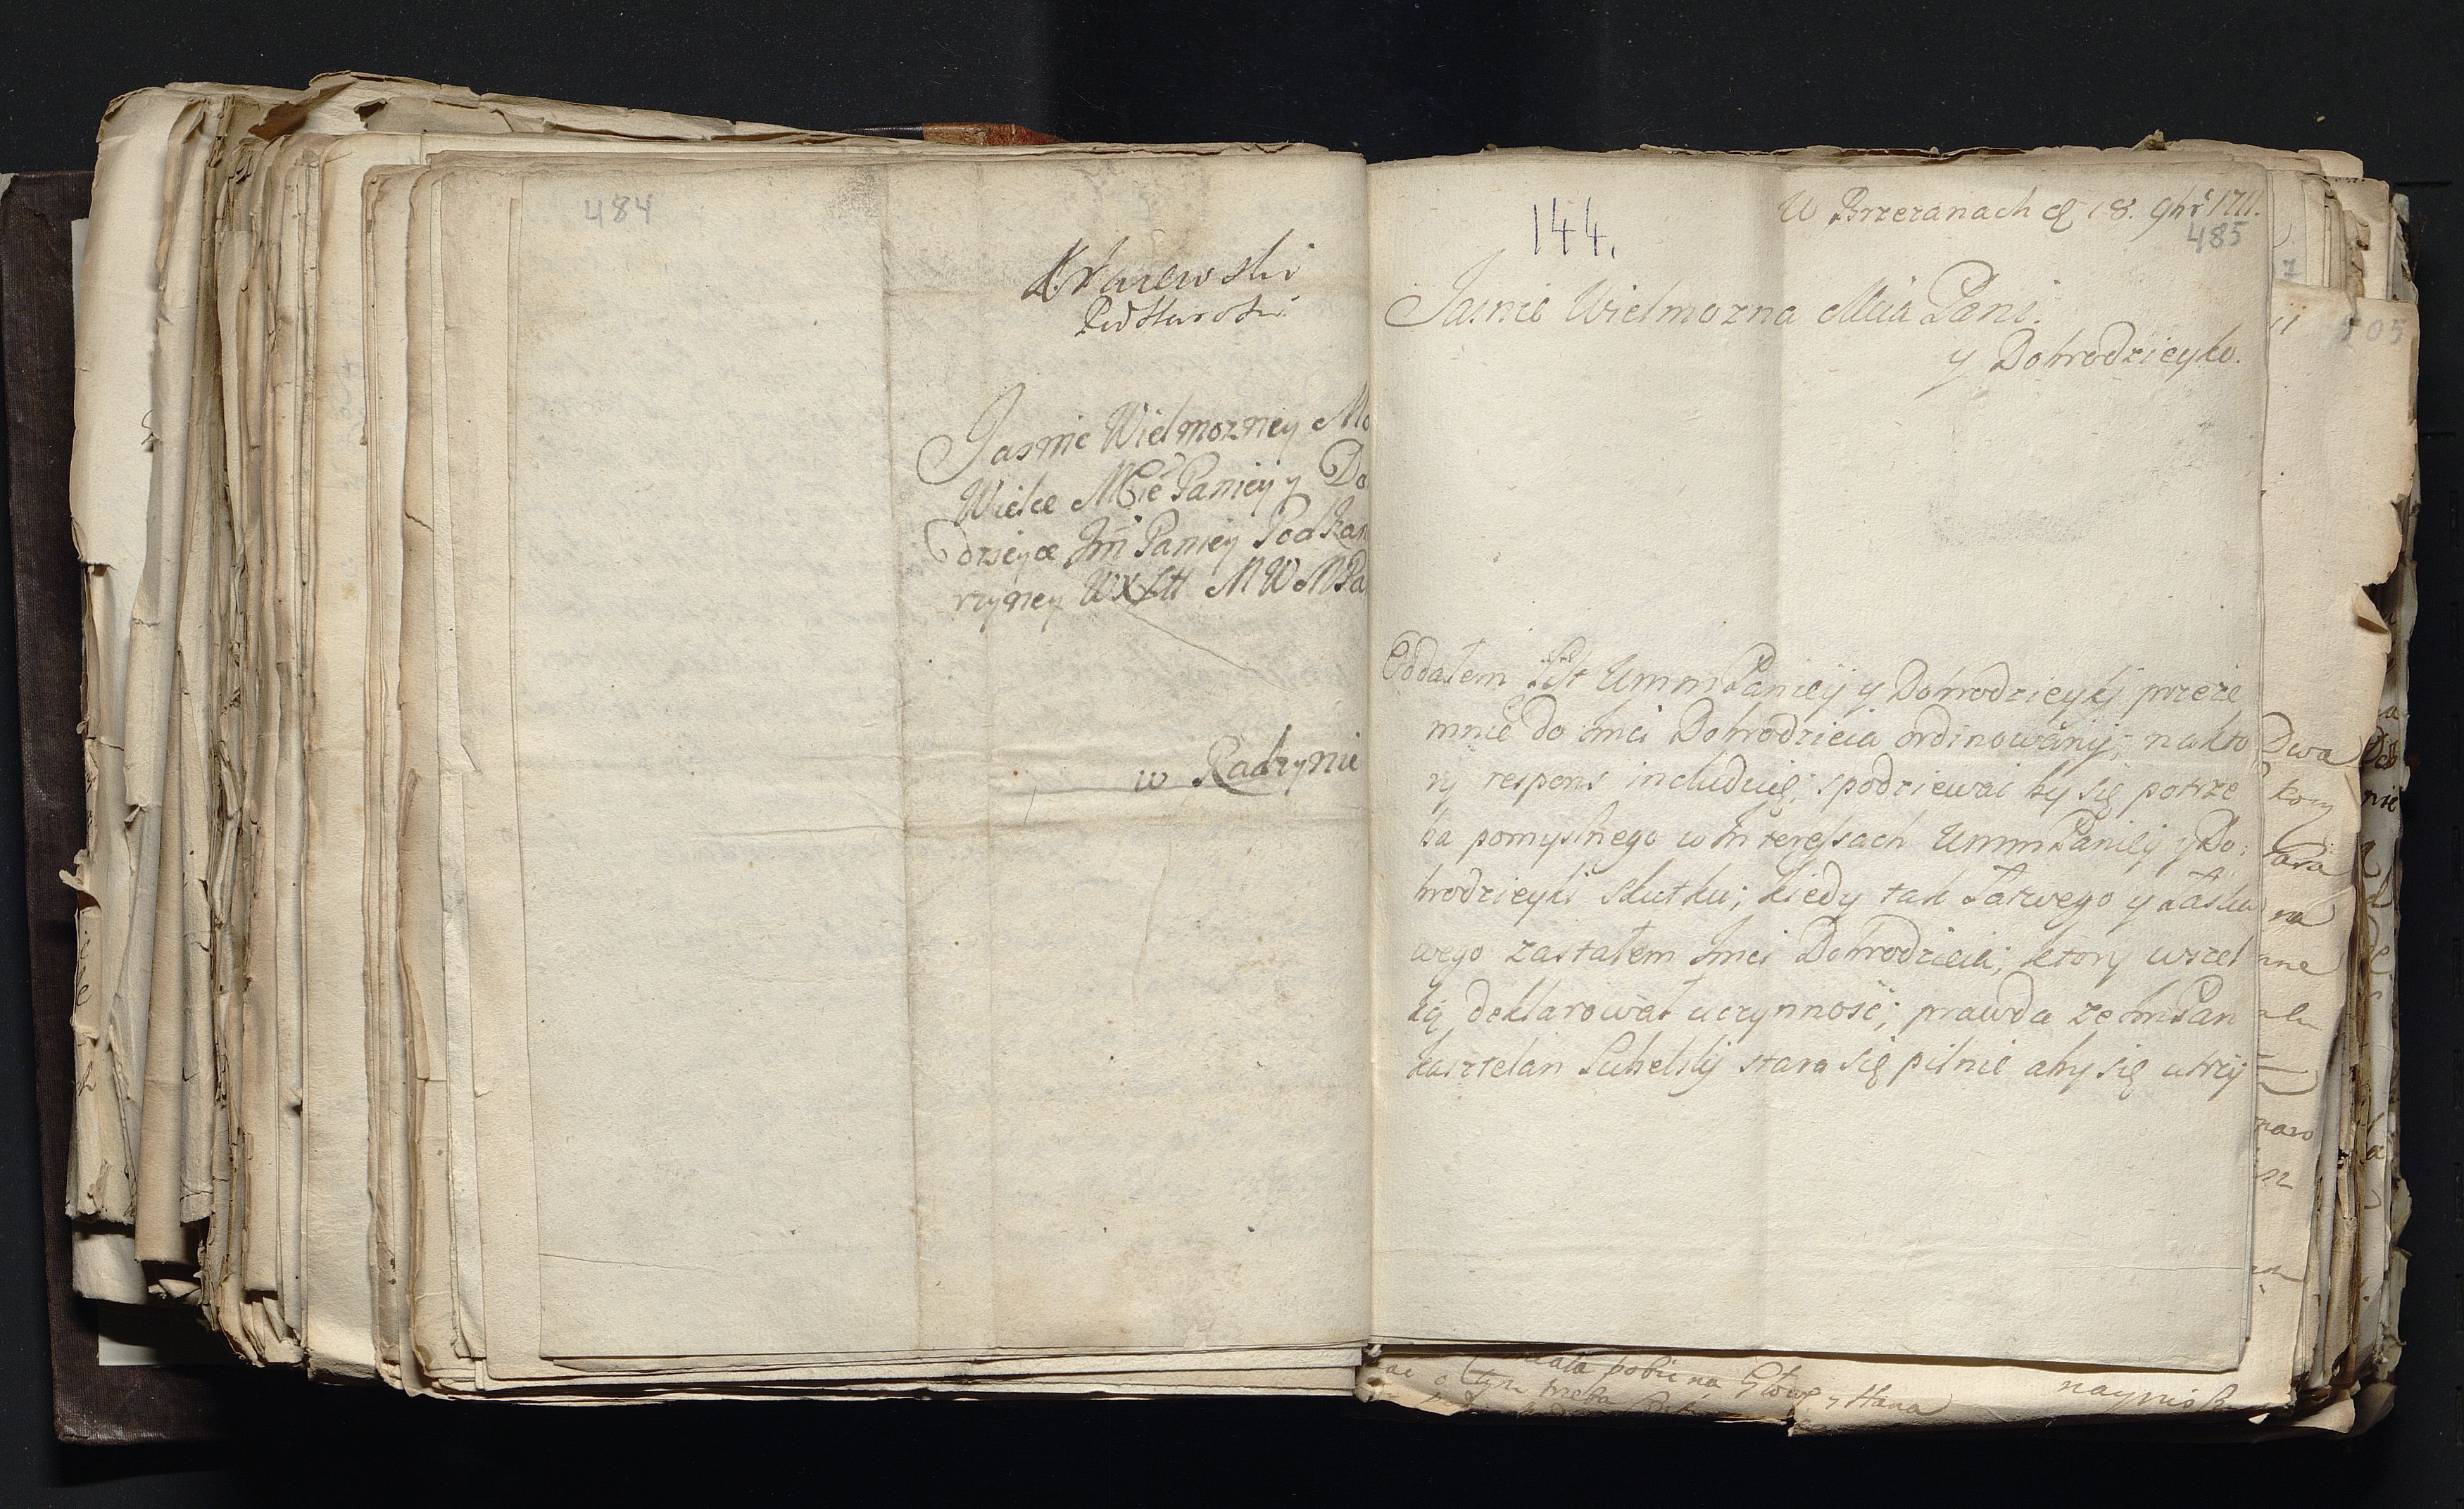 484
Krajewski
Podstarości
Jasnie Wielmozney Mo
Wielce Mćie Paniey y Do
dzieyce Jm Paniey Podkan
rzyney WXLitt MWMPa
w Radzynie
144.
W Brzezanach d 18. 9br 1711.
485
Jasnie Wielmozna Mcia Pani.
y Dobrodzieyko.
Oddałem List Umm Paniey y Dobrodzieyki przeze
mnie do Jmci Dobrodzieia ordinowany; na kto
ry respons includuię; spodziewac by się potrze
ba pomyslnego w Interessach Umm Paniey y Do:
brodzieyki skutku; kiedy tak Łatwego y Łaska
wego zastałem Jmci Dobrodzieia; ktory wszel
ką deklarował uczynność; prawda ze Jm Pan
kasztelan Lubelsky stara się pilnie aby się utrzy
505
Dwa
na
naro
pobić na Głowę y Stara
o tym trzeba